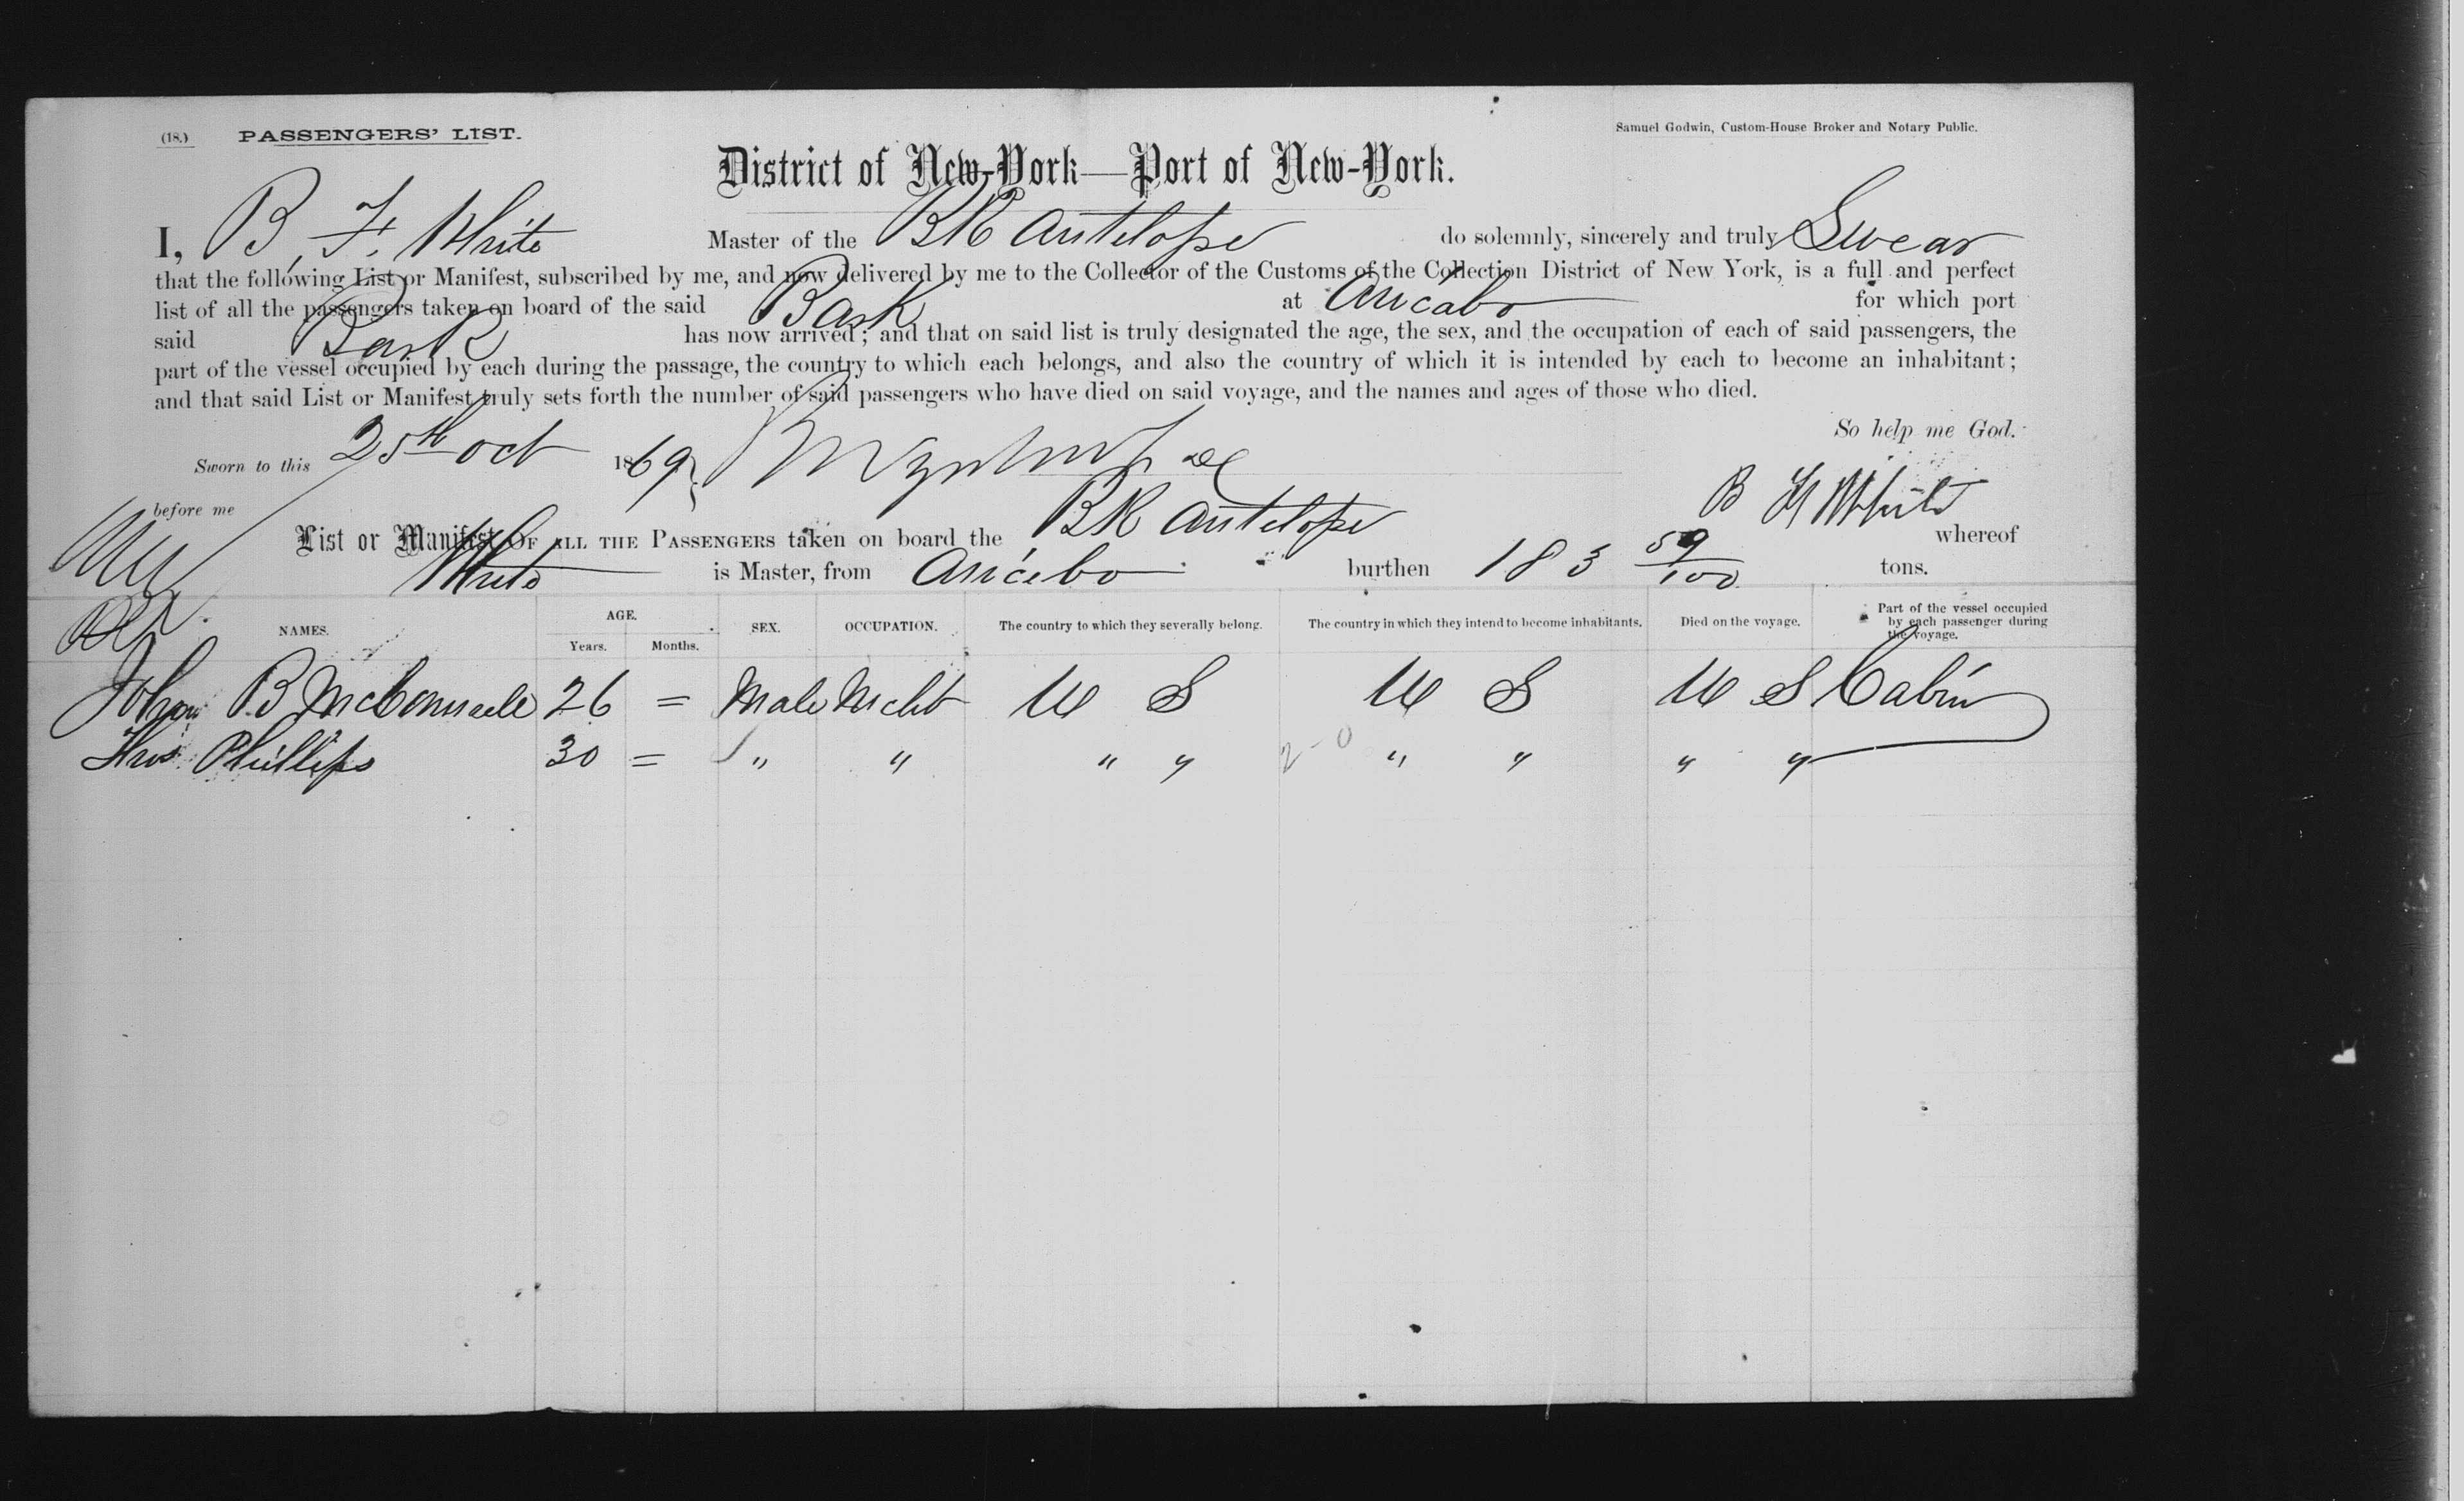 (18.) PASSENGERS' LIST.
Samuel Godwin, Custom-House Broker and Notary Public.
District of New-York—Port of New-York.
I, B. F. White Master of the BK Antelope do solemnly, sincerely and truly Swear
that the following List or Manifest, subscribed by me, and now delivered by me to the Collector of the Customs of the Collection District of New York, is a full and perfect
list of all the passengers taken on board of the said Bark at Aricabo for which port
said Bark has now arrived; and that on said list is truly designated the age, the sex, and the occupation of each of said passengers, the
part of the vessel occupied by each during the passage, the country to which each belongs, and also the country of which it is intended by each to become an inhabitant;
and that said List or Manifest truly sets forth the number of said passengers who have died on said voyage, and the names and ages of those who died.
So help me God.
Sworn to this 25th Oct 1869
before me
B F White
List or Manifest OF ALL THE PASSENGERS taken on board the BK Antelope whereof
White is Master, from Aricebo burthen 183 59/100 tons.
NAMES. AGE. Years. Months. SEX. OCCUPATION. The country to which they severally belong. The country in which they intend to become inhabitants. Died on the voyage. Part of the vessel occupied by each passenger during the voyage.
John B McConnell 26 = Male Mcht U S U S U S Cabin
Phillips 30 = " " " " " " " "
2-0